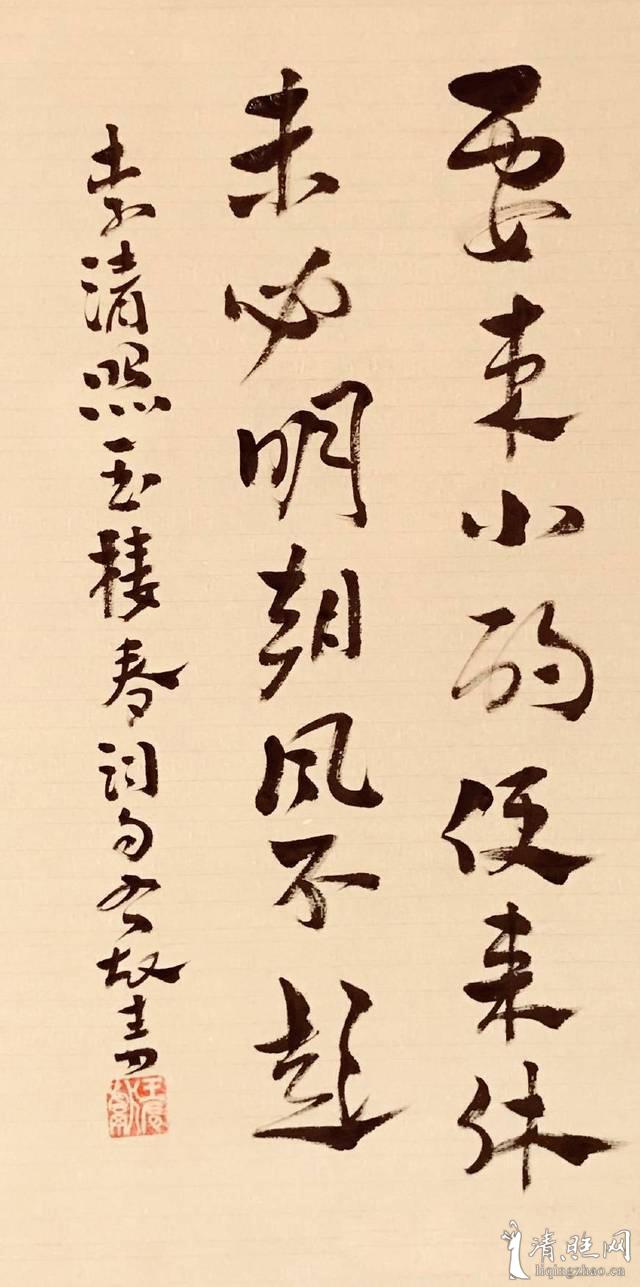 要来小酌便来休
未必明朝风不起
李清照玉楼春词句
清照网
liqingzhao.cn